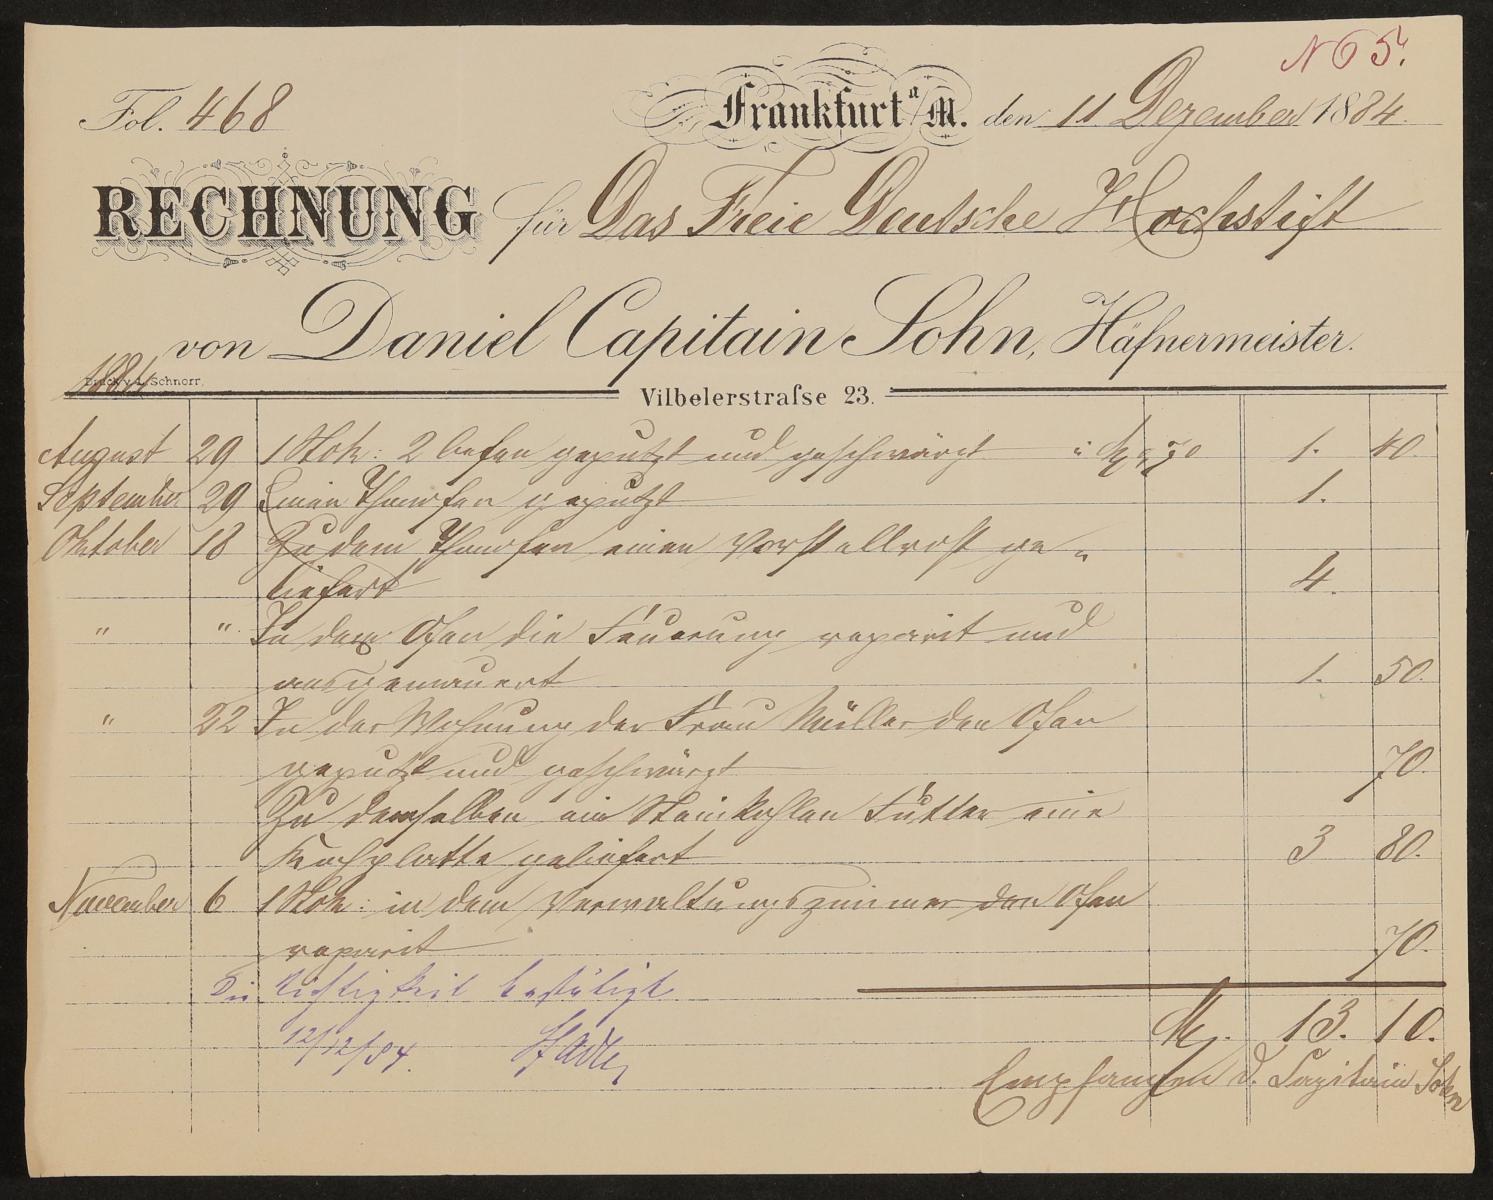 N 65.
Fol. 468
Frankfurt a/M. den 11 Dezember 1884.
RECHNUNG für Das Freie Deutsche Hochstift
von Daniel Capitain Sohn, Häfnermeister.
1884
Druck v. L. Schnorr.
Vilbelerstraſse 23.
August 29 1 Stok: 2 Oefen geputzt und geschwärzt à M 0,70 1. 40.
September 29 Einen Thonofen geputzt 1.
Oktober 18 Zu dem Thonofen einen Vorstellrost ge-
liefert 4.
" " In dem Ofen die Feuerung reparirt und
ausgemauert 1. 50.
" 22 In der Wohnung der Frau Müller den Ofen
geputzt und geschwärzt 70.
Zu demselben ein Steinkohlen Fütter eine
Kochplatte geliefert 3 80.
November 6 1 Stok: in dem Verwaltungszimmer den Ofen
reparirt 70.
Die Richtigkeit bestätigt
M. 13. 10.
12/12/84.
Empfangen D. Capitain Sohn